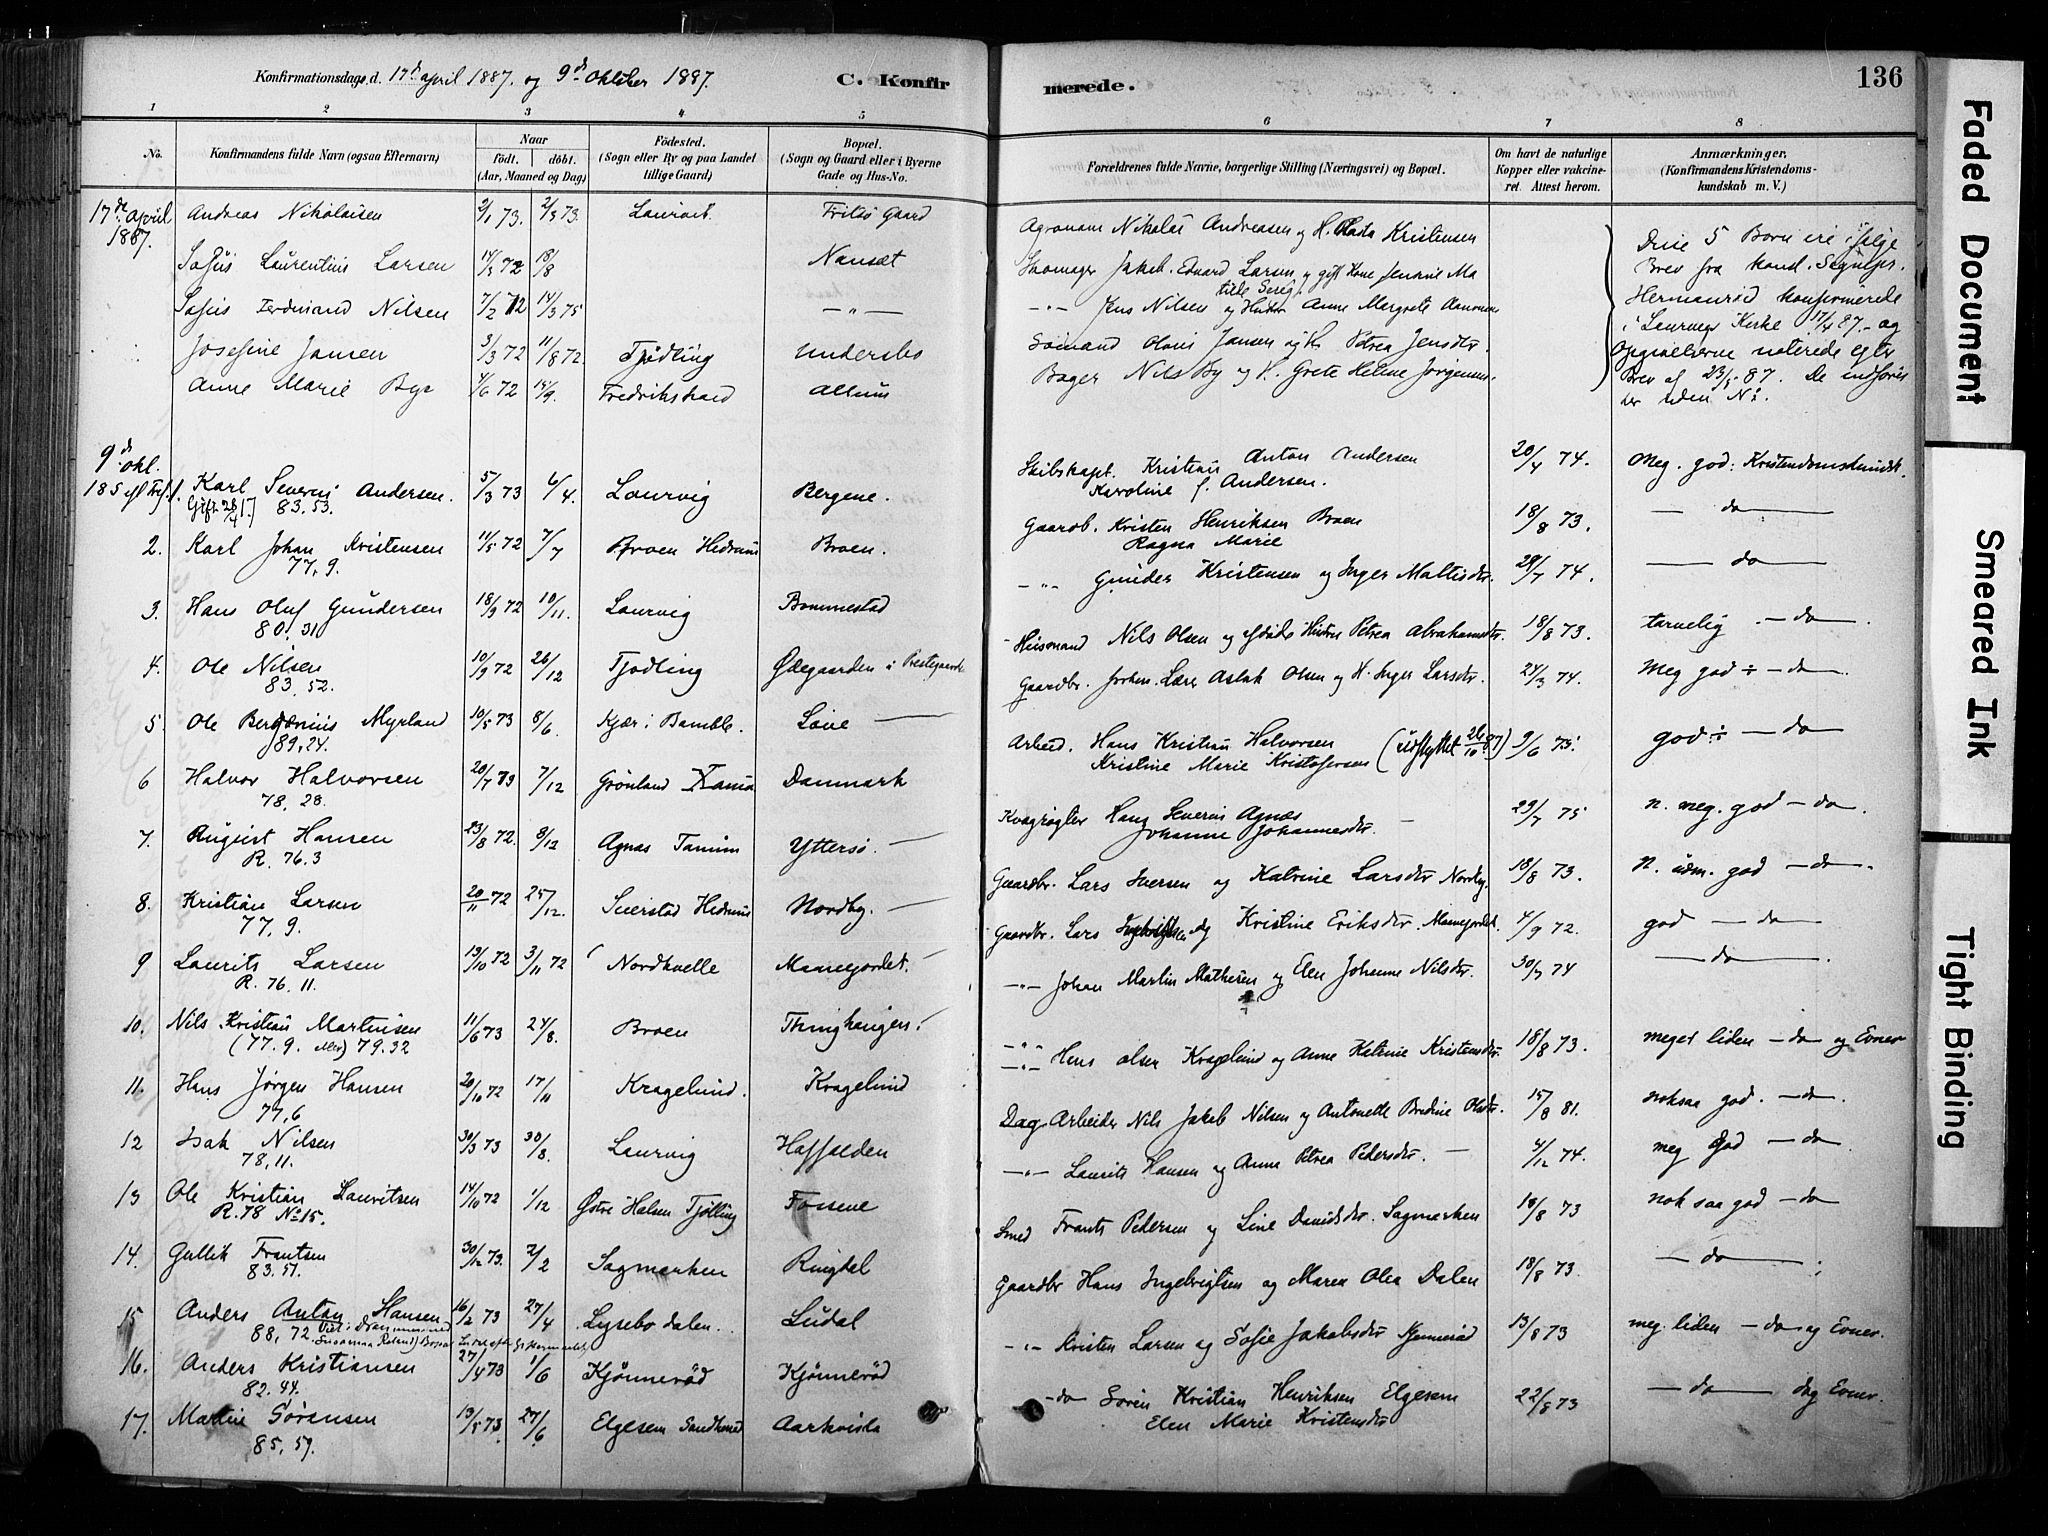 Konfirmationsdage, d. 17de april 1887. og 9de Oktober 1887. C. Konfirmerede. 136
1 2 3 4 5 6 7 8
No.
Konfirmandens fulde Navn (ogsaa Efternavn)
Naar
födt. döbt.
(Aar, Maaned og Dag)
Födested.
(Sogn eller By og paa Landet tillige Gaard)
Bopæl.
(Sogn og Gaard eller i Byerne Gade og Hus-No.
Forældrenes fulde Navne, borgerlige Stilling (Næringsvei) og Bopæl.
Om havt de naturlige Kopper eller vakcineret. Attest herom.
Anmærkninger.
(Konfirmandens Kristendomskundskab m. V.)
17de april 1887. Andreas Nikolaisen 2/1 73. 2/3 73. Laurvik Fritsø Gaard Agronom Nikolai Andreasen og H. Kristensen
Sofus Laurentius Larsen 14/3 72 18/8 Nansæt Skomager Jakob Edvard Larsen
Sofus Ferdinand Nilsen 7/2 72 14/3 75 —"— —"— Jens Nilsen og Hustru Anne Margrete
Josefine Jansen 3/3 72 11/8 72 Tjødling Undersbo Sømand Jansen og H. Petrea Jensdtr.
Anne Marie By 4/6 72 15/9. Fredrikshavn Allum Bager Nils By og H. Grete Helene Jørgens.
Disse 5 Børn ere ifølge
Brev fra
konfirmerede
i Laurvigs Kirke 17/4 87.- og
Opgivelserne noterede efter
Brev af 23/5 87. De indføres
her uden No.
9de okt.
185 1. Karl Severin Andersen. 5/3 73 6/4. Laurvig Bergene. Skibskapt. Kristian Anton Andersen 20/4 74. Meg. god: Kristendomskundsk.
83.53. Karoline f. Andersen.
2. Karl Johan Kristensen 11/5 72 7/7 Broen Hedrum Broen. Gaardb. Kristen Henriksen Broen 18/8 73. — do —
77,9. Ragna Marie
3. Hans Oluf Gundersen 18/9 72 10/11. Laurvig Bommestad —"— Gunder Kristensen og Inger Mattisdtr. 29/7 74. — do —
80.31
4. Ole Nilsen 10/9 72 26/12 Tjodling Ødegaarden i Prestegaards Husmand Nils Olsen og Hustru Petrea Abrahamsdtr. 18/8 73. tarvelig — do —
83.52.
5. Ole Myrland 10/5 73 8/6. Kjær i Bamble. Løve — Gaardbr. Aslak Olsen og H. Inger Larsdtr. 24/3 74. Meg god — do —
89,24.
6 Halvor Halvorsen 20/7 73 7/12 Grønland Danmark Arbeid. Hans Kristian Halvorsen (udflyttet 26/10 87) 9/6 73. god — do —
78, 28. Kristine Marie Kristofersen
7. August Hansen 23/8 72. 8/12 Agnæs Tanum Yttersø. — Hans Severin Agnæs — 29/7 75 n. meg. god — do.
R. 76.3 Johanne Johannesdtr.
8. Kristian Larsen 20/11 72 25/12. Seierstad Hedrum Nordby. — Gaardbr. Lars Iversen og Katrine Larsdtr Nordby. 18/8 73. n. udm. god — do —.
77,9.
9 Laurits Larsen 13/10 72 3/11 72 Nordkvelle Maanejordet. Gaardbr. Lars og Kristine Eriksdtr. Maanejordet. 4/9 72. god — do —
R. 76.11.
10. Nils Kristian Martinsen 11/6 73 24/8. Broen Thinghaugen. —"— Johan Martin Mathisen og Elen Johanne Nilsdtr. 30/7 74 — do —.
(77.9. 79.32
11. Hans Jørgen Hansen 20/10 72 17/11 Kragelund. Kragelund —"— Hans Olsen Kragelund og Anne Katrine Kristensdtr. 18/8 73. meget liden — do — og Evner
77,6
12 Isak Nilsen 30/3 73 30/8. Laurvig Haffselden Dag Arbeider Nils Jakob Nilsen og Antonette Bredine Olsdtr. 15/8 81. noksaa god. — do —.
78,11.
13 Ole Kristian Lauritsen 14/10 72 1/12 Østre Halsen Tjølling Fossene —"— Laurits Hansen og Anne Petrea Pedersdtr. — 4/12 74. meg God — do
R.78 No 15.
14. Gullik Frantsen 30/12 73. 2/2 Sagmarken Ringdal Smed Frants Pedersen og Line Davidsdtr. Sagmarken 18/8 73 nok saa god — do
83.51.
15 Anders Anton Hansen 16/2 73 27/4 Lysebo dalen. Ludal Gaardbr Hans Ingebrigtsen og Maren Olea Dalen 18/8 73. — do —.
88,72.
16. Anders Kristiansen 27/4 73 1/6 Kjønnerød Kjønnerød —"— Kristen Larsen og Sofie Jakobsdtr Kjønnerød 13/8 73 meg. liden — do og Evner.
82.44.
17. Martin Sørensen 13/5 73. 27/6 Elgesem Sandherred Aarkvisla — do Søren Kristian Henriksen Elgesem 22/8 73 — do — og Evner.
85,51. Elen Marie Kristensdtr
Faded Document
Smeared Ink
Tight Binding